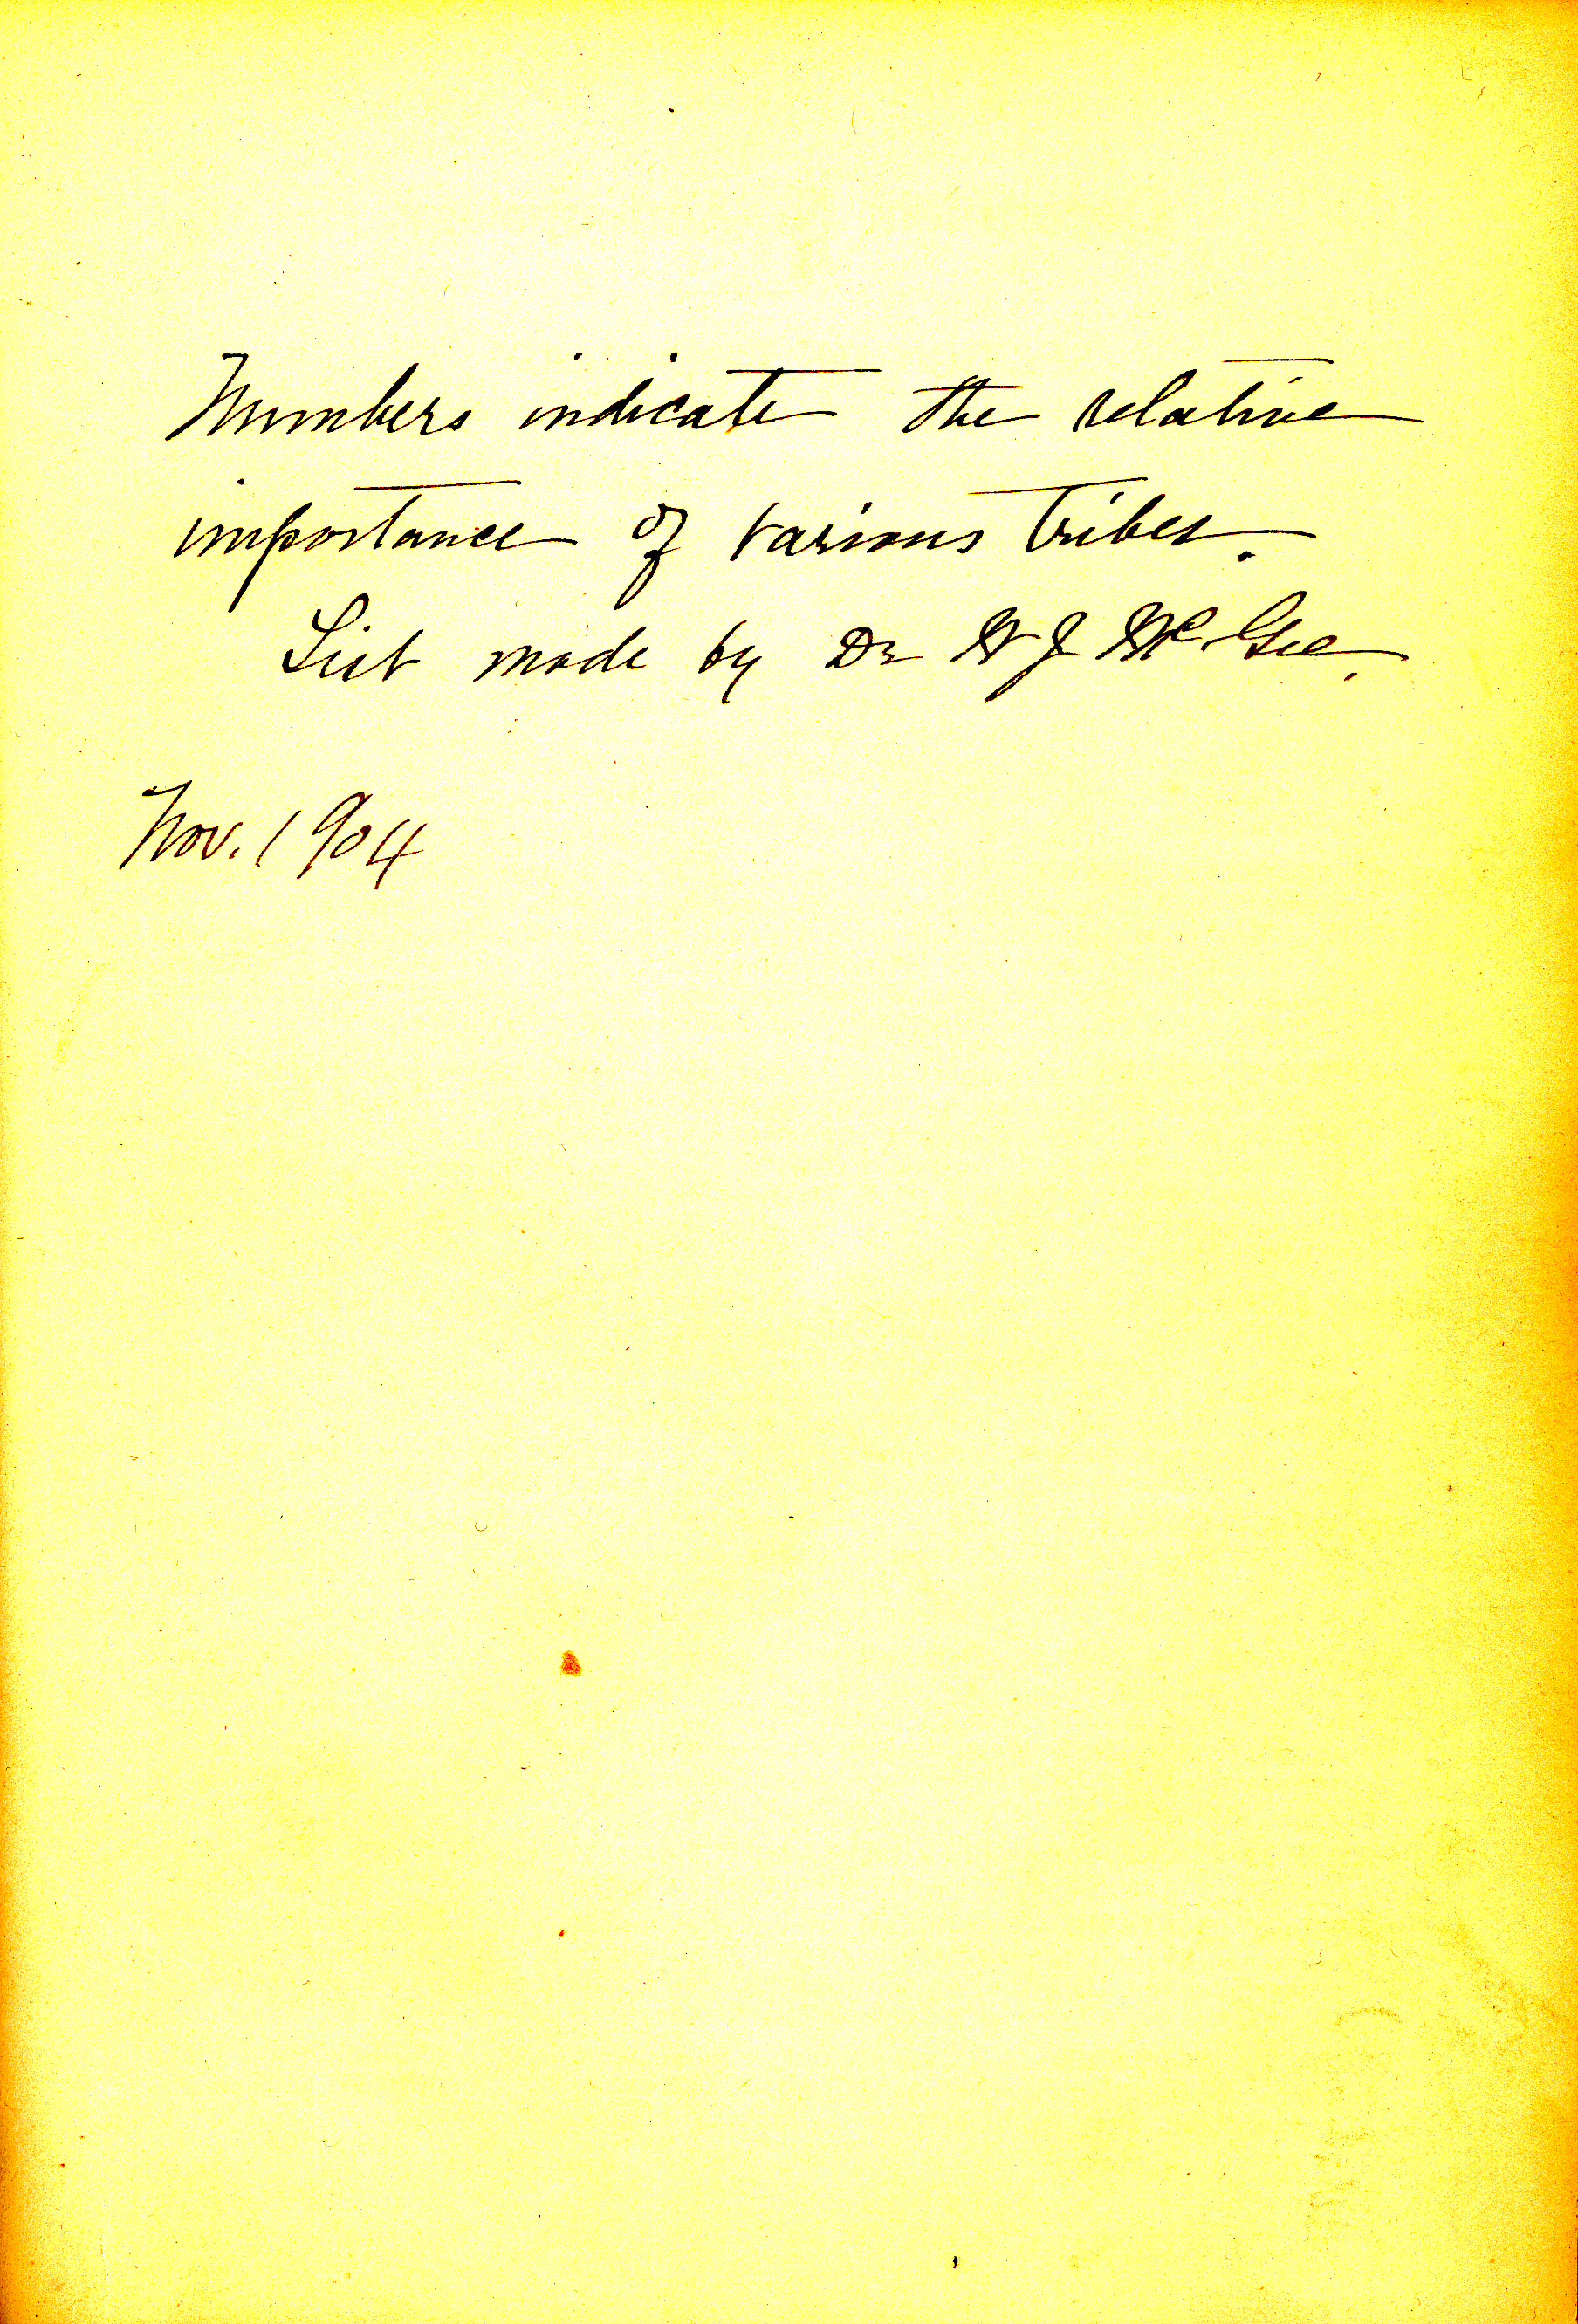 Numbers indicate the relative
importance of various tribes.
List made by Dr W J McGee.
Nov. 1904